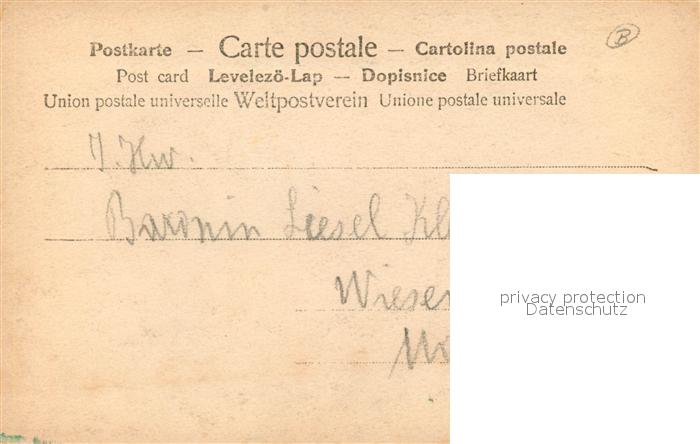 Postkarte — Carte postale — Cartolina postale
B
Post card Levelező-Lap — Dopisnice Briefkaart
Union postale universelle Weltpostverein Unione postale universale
Baronin Liesel Kl
Wiesen
privacy protection
Datenschutz